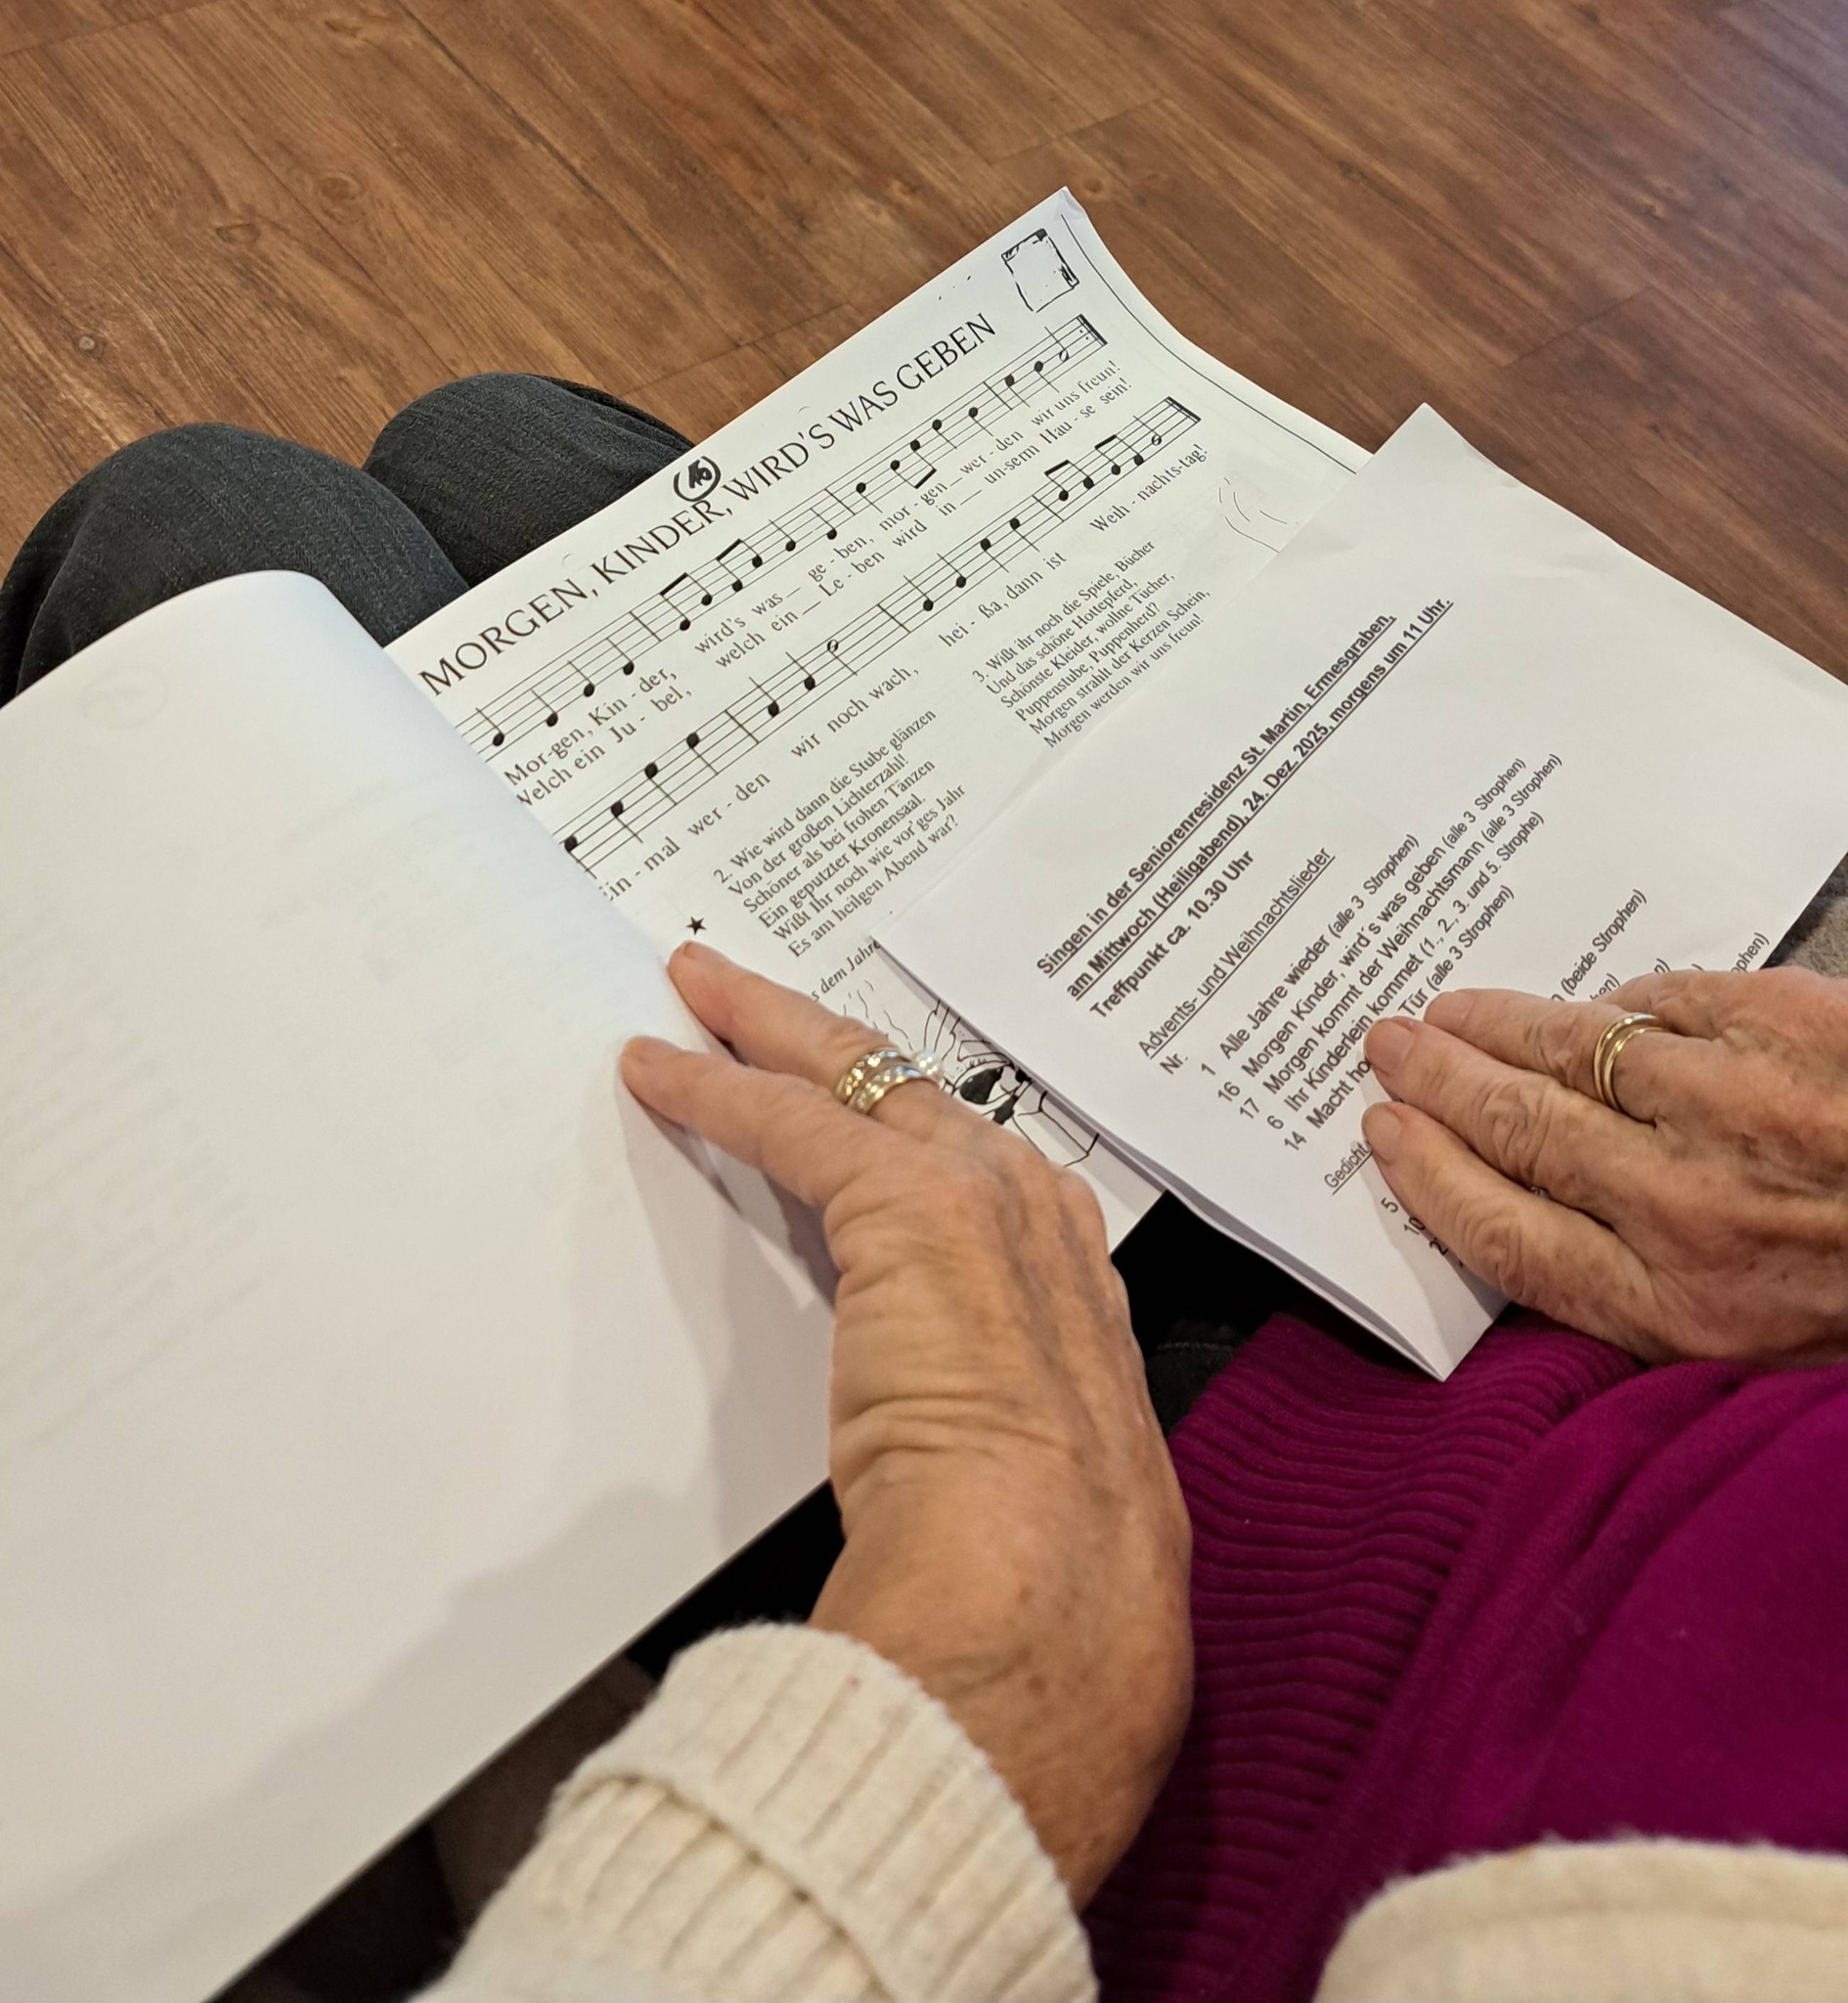 16
MORGEN, KINDER, WIRD'S WAS GEBEN
Mor-gen, Kin - der, wird's was ge - ben, mor - gen wer - den wir uns freun!
Welch ein Ju - bel, welch ein Le - ben wird in un-serm Hau - se sein!
mal wer - den wir noch wach, hei - ßa, dann ist Weih - nachts-tag!
2. Wie wird dann die Stube glänzen
Von der großen Lichterzahl!
Schöner als bei frohen Tänzen
Ein geputzter Kronensaal.
Wißt Ihr noch wie vor'ges Jahr
Es am heilgen Abend war?
3. Wißt ihr noch die Spiele, Bücher
Und das schöne Hottepferd,
Schönste Kleider, wollne Tücher,
Puppenstube, Puppenherd?
Morgen strahlt der Kerzen Schein,
Morgen werden wir uns freun!
dem Jahre
Singen in der Seniorenresidenz St. Martin, Ermesgraben,
am Mittwoch (Heiligabend), 24. Dez. 2025, morgens um 11 Uhr.
Treffpunkt ca. 10.30 Uhr
Advents- und Weihnachtslieder
Nr.
1 Alle Jahre wieder (alle 3 Strophen)
16 Morgen Kinder, wird´s was geben (alle 3 Strophen)
17 Morgen kommt der Weihnachtsmann (alle 3 Strophen)
6 Ihr Kinderlein kommet (1., 2., 3. und 5. Strophe)
14 Macht Tür (alle 3 Strophen)
5 (beide Strophen)
10